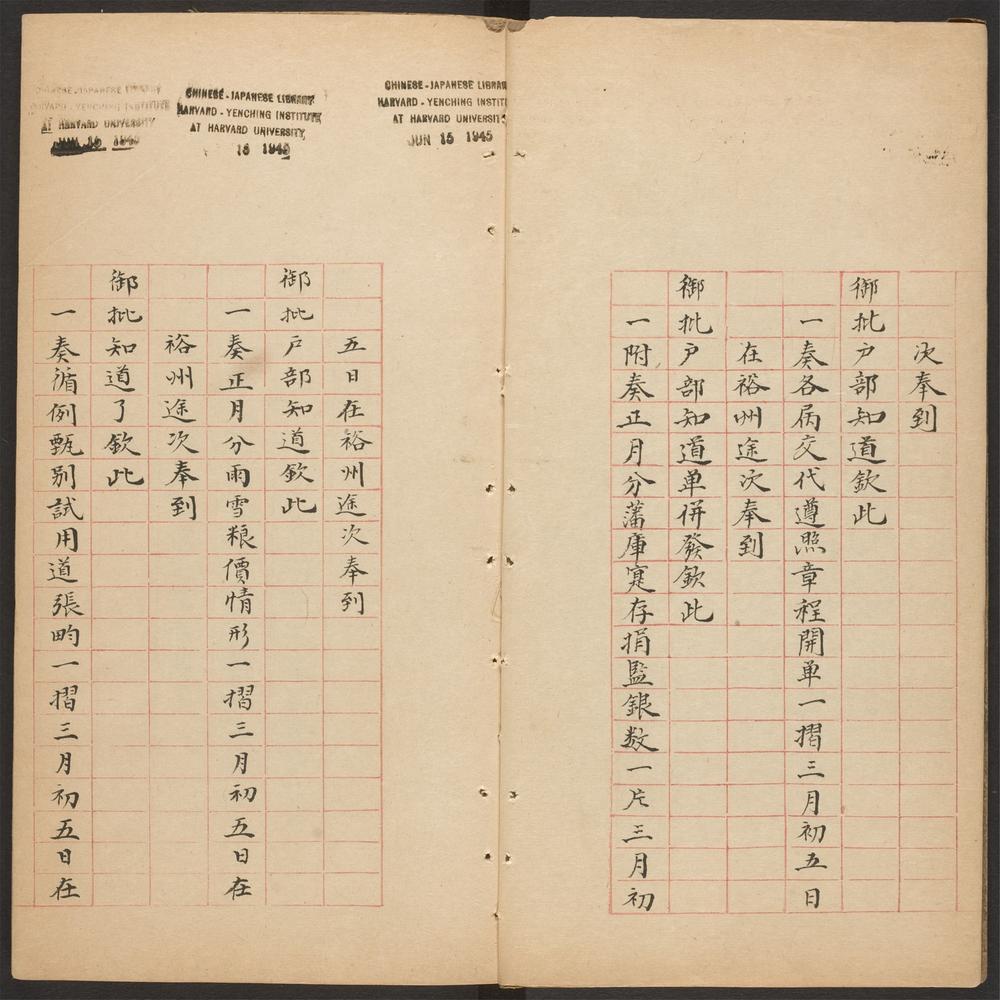 次奉到
御批户部知道欽此
一奏各属交代遵照章程開单一摺三月初五日
在裕州途次奉到
御批户部知道单併發欽此
一附奏正月分藩庫寔存捐監銀数一片三月初
五日在裕州途次奉到
御批户部知道欽此
一奏正月分雨雪粮價情形一摺三月初五日在
裕州途次奉到
御批知道了欽此
一奏循例甄别試用道張畇一摺三月初五日在
CHINESE-JAPANESE LIBRARY
HARVARD-YENCHING INSTITUTE
AT HARVARD UNIVERSITY
CHINESE-JAPANESE LIBRARY
HARVARD-YENCHING INSTITUTE
AT HARVARD UNIVERSITY
15 1945
CHINESE-JAPANESE LIBRAR
HARVARD-YENCHING INSTIT
AT HARVARD UNIVERSIT
JUN 15 1945